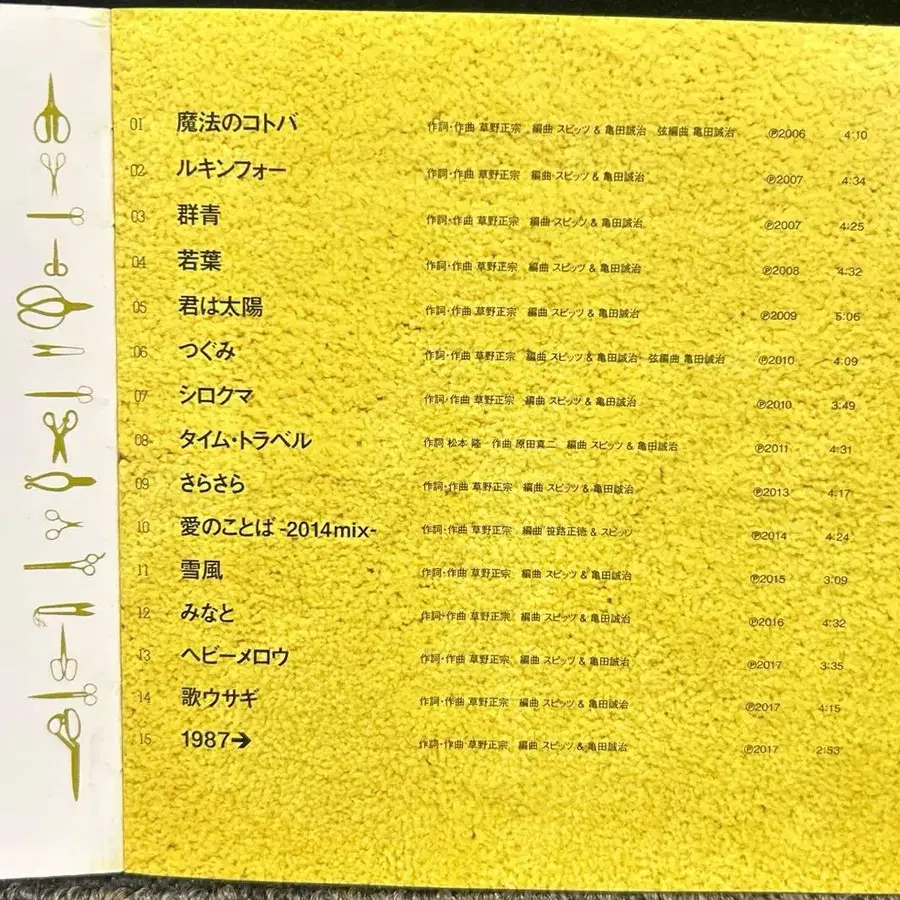 01 魔法のコトバ 作詞・作曲 草野正宗 編曲 スピッツ & 亀田誠治 弦編曲 亀田誠治 ℗2006 4:10
02 ルキンフォー 作詞・作曲 草野正宗 編曲 スピッツ & 亀田誠治 ℗2007 4:34
03 群青 作詞・作曲 草野正宗 編曲 スピッツ & 亀田誠治 ℗2007 4:25
04 若葉 作詞・作曲 草野正宗 編曲 スピッツ & 亀田誠治 ℗2008 4:32
05 君は太陽 作詞・作曲 草野正宗 編曲 スピッツ & 亀田誠治 ℗2009 5:06
06 つぐみ 作詞・作曲 草野正宗 編曲 スピッツ & 亀田誠治 弦編曲 亀田誠治 ℗2010 4:09
07 シロクマ 作詞・作曲 草野正宗 編曲 スピッツ & 亀田誠治 ℗2010 3:49
08 タイム・トラベル 作詞 松本 隆 作曲 原田真二 編曲 スピッツ & 亀田誠治 ℗2011 4:31
09 さらさら 作詞・作曲 草野正宗 編曲 スピッツ & 亀田誠治 ℗2013 4:17
10 愛のことば -2014mix- 作詞・作曲 草野正宗 編曲 笹路正徳 & スピッツ ℗2014 4:24
11 雪風 作詞・作曲 草野正宗 編曲 スピッツ & 亀田誠治 ℗2015 3:09
12 みなと 作詞・作曲 草野正宗 編曲 スピッツ & 亀田誠治 ℗2016 4:32
13 ヘビーメロウ 作詞・作曲 草野正宗 編曲 スピッツ & 亀田誠治 ℗2017 3:35
14 歌ウサギ 作詞・作曲 草野正宗 編曲 スピッツ & 亀田誠治 ℗2017 4:15
15 1987→ 作詞・作曲 草野正宗 編曲 スピッツ & 亀田誠治 ℗2017 2:53